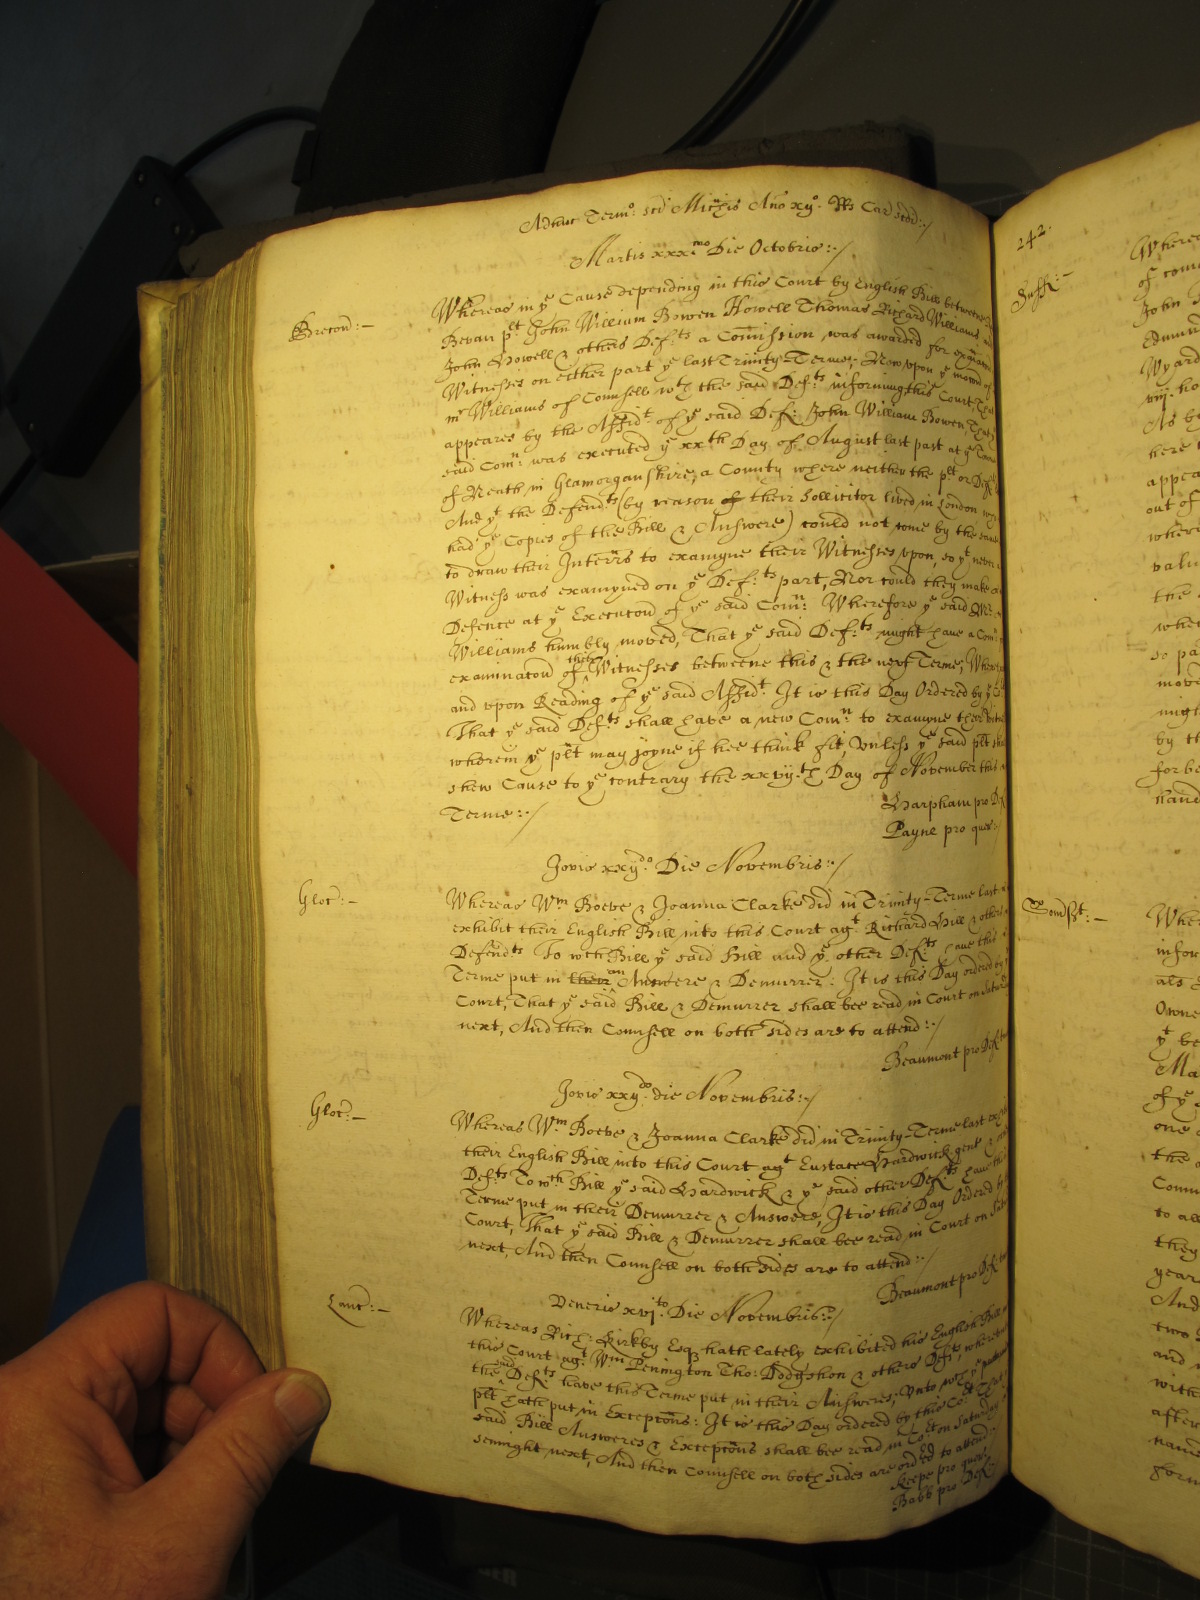 Adhuc Termo: scd Michis Ano xijo. Rs Car scdd:/
Martis xxxmo Die Octobris:/
Brecon:–
Whereas in ye Cause depending in this Court by English Bill betweene
Bevan plt John William Bowen Howell Thomas Richard Williams
John Howell & others Def:ts a Comission was awarded for
Witnesses on either part ye last Trinity-Terme; Now upon ye mocon of
mr Williams of Counsell wth the said Def:ts informing this Court, That
appeares by the Affidt of ye said Def: John William Bowen, That
said Comn: was executed ye xxth Day of August last past at ye Towne
of Neath in Glamorganshire, a County where neither the plt or Def
And yt the Defendts (by reason of their Sollicitor lived in London who
had ye Copies of the Bill & Answere) could not come by the same
to draw their Interrs to examyne their Witnesses upon, so yt never
Witness was examyned on ye Def:ts part, Nor could they make
Defence at ye Executcon of ye said Comn: Wherefore ye said Mr
Williams humbly moved, That ye said Def:ts might have a Comn
examinatcon of their Witnesses betweene this & the next Terme, Where
and upon Reading of ye said Affidt: It is this Day Ordered by ye
That ye said Def:ts shall have a new Comn to examyne their
wherein ye plt may joyne if hee think fit, Unless ye said plt
shew Cause to ye contrary the xxvijth Day of November this
Terme:/
Harpham pro Def
Payne pro quer:/
Jovis xxijdo Die Novembris:/
Gloc:–
Whereas Wm Boeve & Joanna Clarke did in Trinity-Terme last
exhibit their English Bill into this Court agt Richard Hill & others
Defendts To wch Bill ye said Hill and ye other Def:ts have this
Terme put in their an Answere & Demurrer: It is this Day ordered by ye
Court, That ye said Bill & Demurrer shall bee read in Court on
next, And then Counsell on both sides are to attend:/
Beaumont pro Def
Jovis xxijdo die Novembris:/
Gloc:–
Whereas Wm Boeve & Joanna Clarke did in Trinity-Terme last
their English Bill into this Court agt Eustace Hardwick gent &
Def:ts To wch Bill ye said Hardwick & ye said other Def:ts have this
Terme put in their Demurrer & Answere, It is this Day Ordered by
Court, That ye said Bill & Demurrer shall bee read in Court on
next, And then Counsell on both sides are to attend:/
Beaumont pro Def
Lanc:–
Veneris xvjto: Die Novembris:/
Whereas Rich: Kirkby Esq hath lately exhibited his English Bill
this Court agt Wm Penington Tho: Dodgshon & others Defts,
the said Defts have this Terme put in their Answeres, Unto wch ye
plt hath put in Exceptcons: It is this Day ordered by this Cort That
said Bill Answeres & Exceptcons shall bee read in Cort on Saturday
sennight next, And then Counsell on both sides are ordd to attend:
Keepe pro quer
Babb pro Def
242.
Suff:–
Whereas
of
John
Edmund
Wyard
As by
here
appea
out of
where
valu
the
whe
so pa
move
migh
by th
forbe
stand
Somset:–
Whe
infor
als
Owne
yt be
Ma
of ye
one
the
Comm
to al
they
year
And
two
and
with
after
name
form